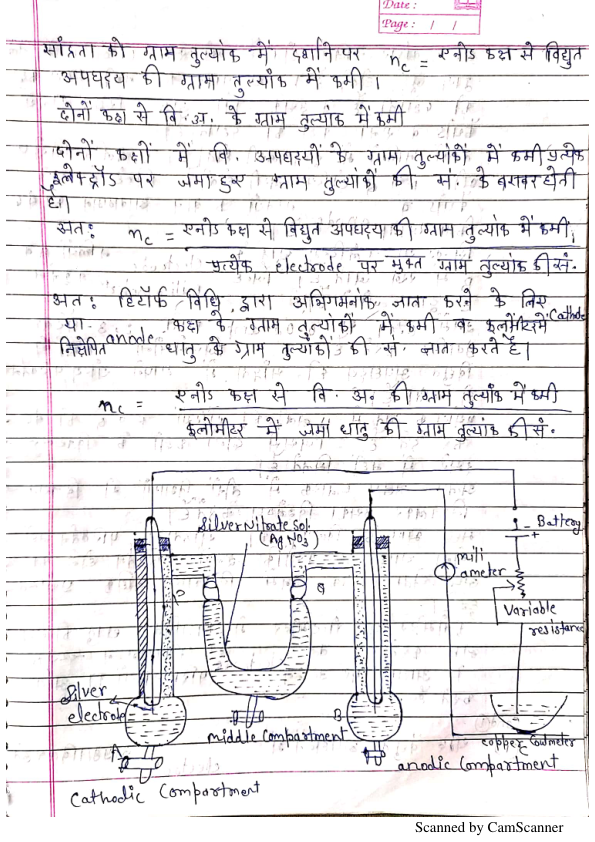 Date :
Page : / /
सांद्रता को ग्राम तुल्यांक में दर्शाने पर nc = एनोड कक्ष से विद्युत
अपघट्य की ग्राम तुल्यांक में कमी ।
दोनों कक्ष से वि. अ. के ग्राम तुल्यांक में कमी
दोनों कक्षों में वि. अपघट्यों के ग्राम तुल्यांकों में कमी प्रत्येक
इलेक्ट्रॉड पर जमा हुए ग्राम तुल्यांकों की सं. के बराबर होती
है।
अतः nc = एनोड कक्ष से विद्युत अपघट्य की ग्राम तुल्यांक में कमी,
प्रत्येक electrode पर मुक्त ग्राम तुल्यांक की सं.
अतः हिटॉर्फ विधि द्वारा अभिगमनांक ज्ञात करने के लिए Cathode
या anode कक्ष के ग्राम तुल्यांकों में कमी व कुलोमीटर में
निक्षेपित धातु के ग्राम तुल्यांकों की सं. ज्ञात करते हैं।
nc = एनोड कक्ष से वि. अ. की ग्राम तुल्यांक में कमी
कुलोमीटर में जमा धातु की ग्राम तुल्यांक की सं.
Silver Nitrate Sol.
(AgNO3)
- Battery
+
mili
ameter
Variable
resistance
Silver
electrode
A
B
middle compartment
copper
anodic compartment
Cathodic Compartment
Scanned by CamScanner